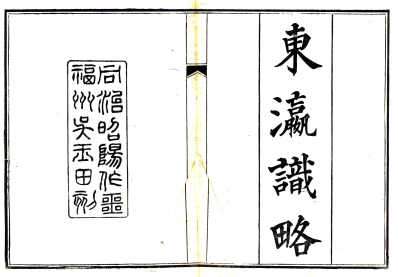 東瀛識略
同治昭陽作噩
福州吳玉田刻